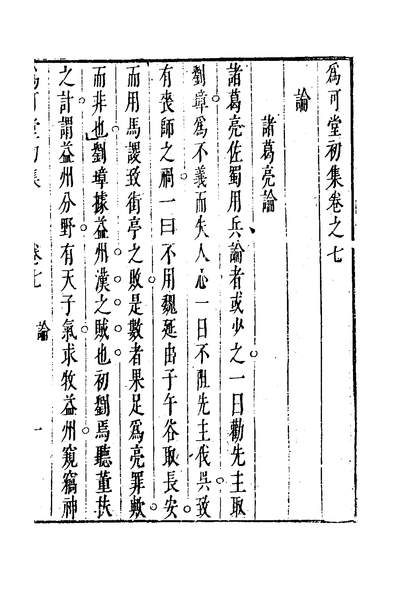 爲可堂初集卷之七
論
諸葛亮論
諸葛亮佐蜀用兵論者或少之一曰勸先主取
劉璋爲不義而失人心一曰不阻先主伐吳致
有喪師之禍一曰不用魏延由子午谷取長安
而用馬謖致街亭之敗是數者果足爲亮罪歟
而非也劉璋據益州漢之賊也初劉焉聽董扶
之計謂益州分野有天子氣求牧益州窺竊神
爲可堂初集 卷七 論 一